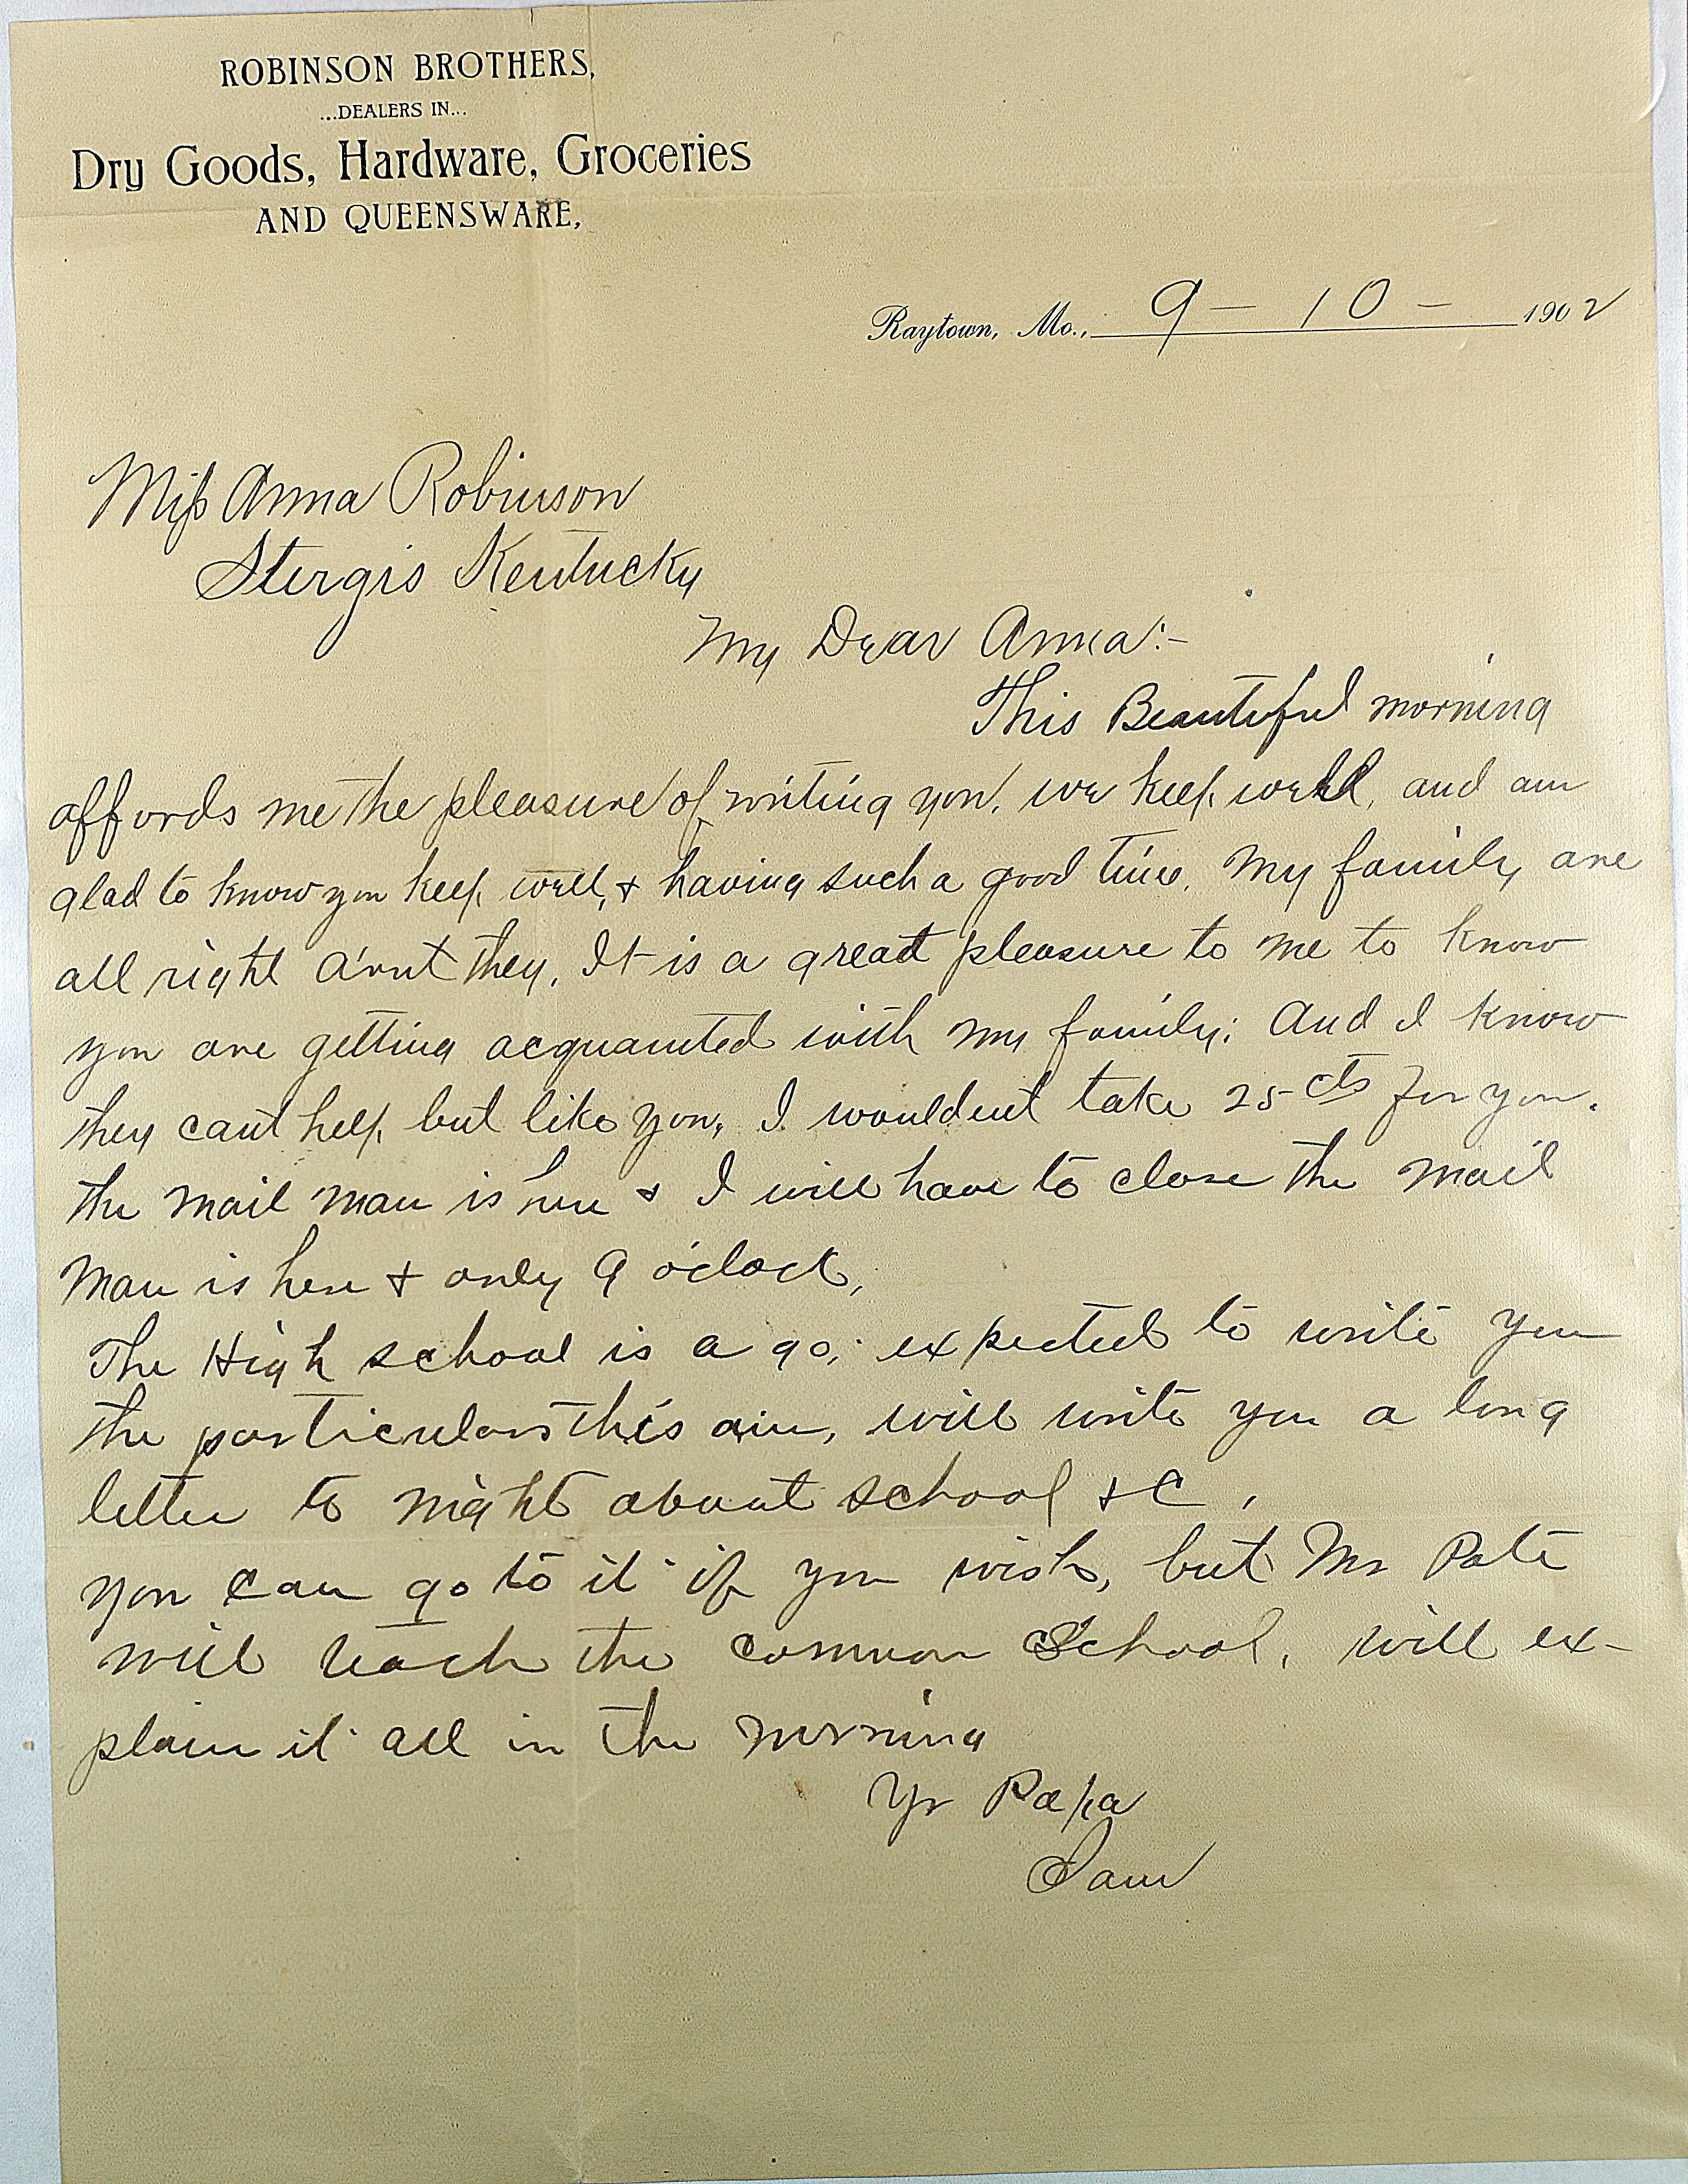 ROBINSON BROTHERS,
...DEALERS IN...
Dry Goods, Hardware, Groceries
AND QUEENSWARE,
Raytown, Mo., 9 - 10 - 1902
Miss Anna Robinson
Sturgis Kentucky
My Dear Anna:-
This Beautiful morning
affords me the pleasure of writing you, we keep well, and am
glad to know you keep well, & having such a good time. My family are
all right a'nt they, It is a great pleasure to me to know
you are getting acquainted with my family; And I know
they cant help but like you, I wouldent take 25 cts for you.
the mail man is here & I will have to close the mail
man is here & only 9 o'clock,
The High school is a go; expected to write you
the particulars this am, will write you a long
letter to night about school &C,
you can go to it if you wish, but Mr Pate
will teach the common School, will ex-
plain it all in the morning
Yr Papa
Sam